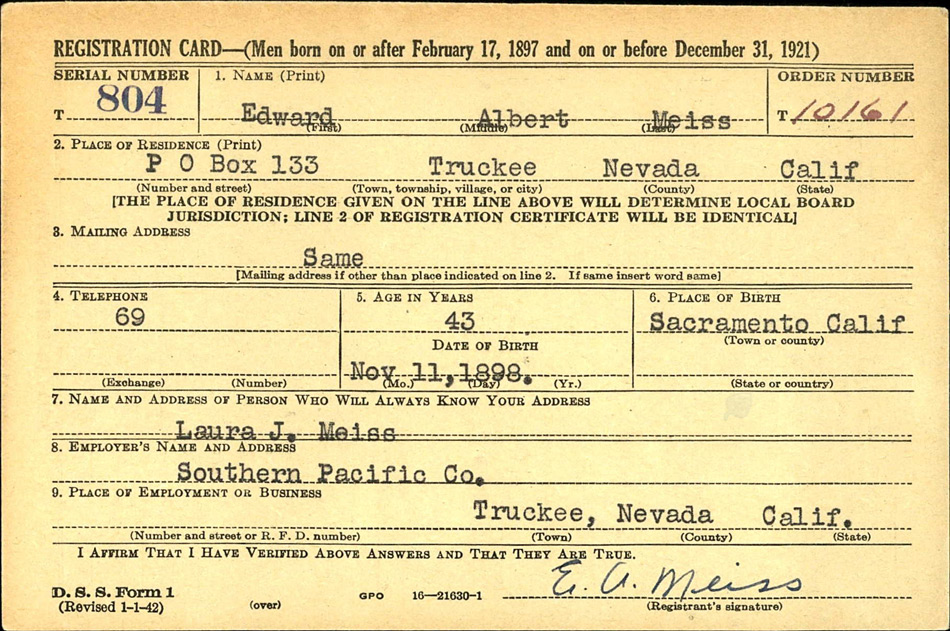 REGISTRATION CARD—(Men born on or after February 17, 1897 and on or before December 31, 1921)
SERIAL NUMBER 1. NAME (Print) ORDER NUMBER
T 804 Edward Albert Meiss T 10161
(First) (Middle) (Last)
2. PLACE OF RESIDENCE (Print)
P O Box 133 Truckee Nevada Calif
(Number and street) (Town, township, village, or city) (County) (State)
[THE PLACE OF RESIDENCE GIVEN ON THE LINE ABOVE WILL DETERMINE LOCAL BOARD
JURISDICTION; LINE 2 OF REGISTRATION CERTIFICATE WILL BE IDENTICAL]
3. MAILING ADDRESS
Same
[Mailing address if other than place indicated on line 2. If same insert word same]
4. TELEPHONE 5. AGE IN YEARS 6. PLACE OF BIRTH
69 43 Sacramento Calif
(Town or county)
DATE OF BIRTH
Nov 11,1898.
(Exchange) (Number) (Mo.) (Day) (Yr.) (State or country)
7. NAME AND ADDRESS OF PERSON WHO WILL ALWAYS KNOW YOUR ADDRESS
Laura J. Meiss
8. EMPLOYER'S NAME AND ADDRESS
Southern Pacific Co.
9. PLACE OF EMPLOYMENT OR BUSINESS
Truckee, Nevada Calif.
(Number and street or R. F. D. number) (Town) (County) (State)
I AFFIRM THAT I HAVE VERIFIED ABOVE ANSWERS AND THAT THEY ARE TRUE.
E. A. Meiss
D. S. S. Form 1
(Revised 1-1-42) (over) GPO 16—21630-1 (Registrant's signature)